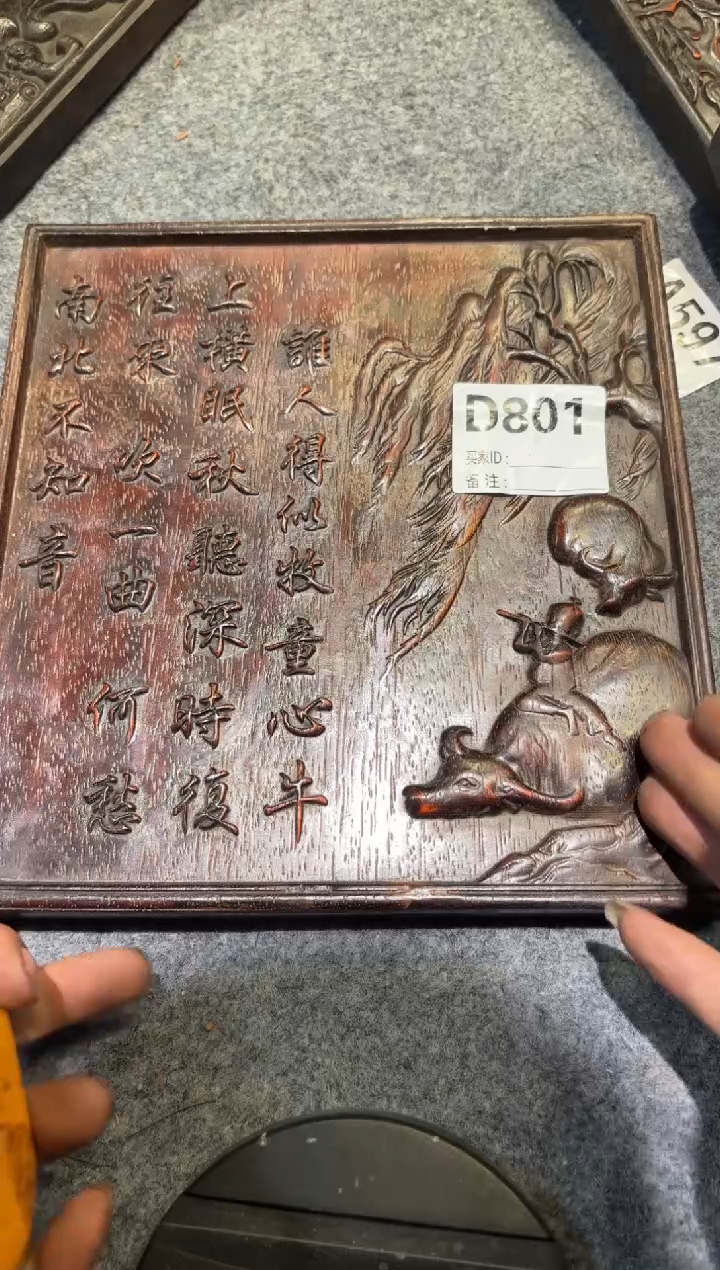 誰人得似牧童心牛
上橫眠秋聽深時復
往來吹一曲何愁
南北不知音
D801
买家ID:
备注: